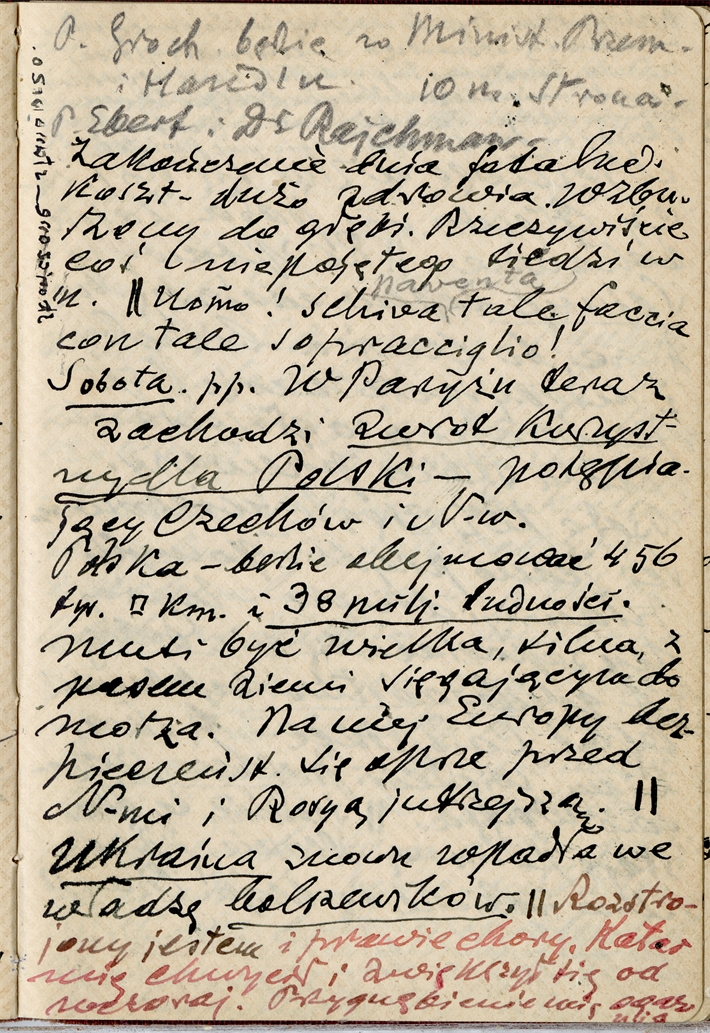 P. Groch będzie w Minist. Przem.
i Handlu. 10 m. Strona.
P. Ebert i Dr Rajchman.
Zakończenie dnia fatalne.
Koszt - dużo zdrowia. Wzbu-
rzony do głębi. Rzeczywiście
coś niepojętego siedzi w
m. || Uomo! schiva tale faccia
paventa
con tale sopracciglio!
Sobota. pp. W Paryżu teraz
zachodzi zwrot korzyst-
ny dla Polski – potępia-
jący Czechów i N-w.
Polska – będzie obejmować 456
tys. □ km. i 38 milj. ludności.
musi być wielka, silna, z
pasem ziemi sięgającym do
morza. Na niej Europy bez-
pieczeńst. się oprze przed
N-mi i Rosyą jutrzejszą. ||
Ukraina znowu wpadła we
władzę bolszewików. || Rozstro-
jony jestem i prawie chory. Katar
mię chwycił i zwiększył się od
wczoraj. Przygnębienie mię ogar-
nia